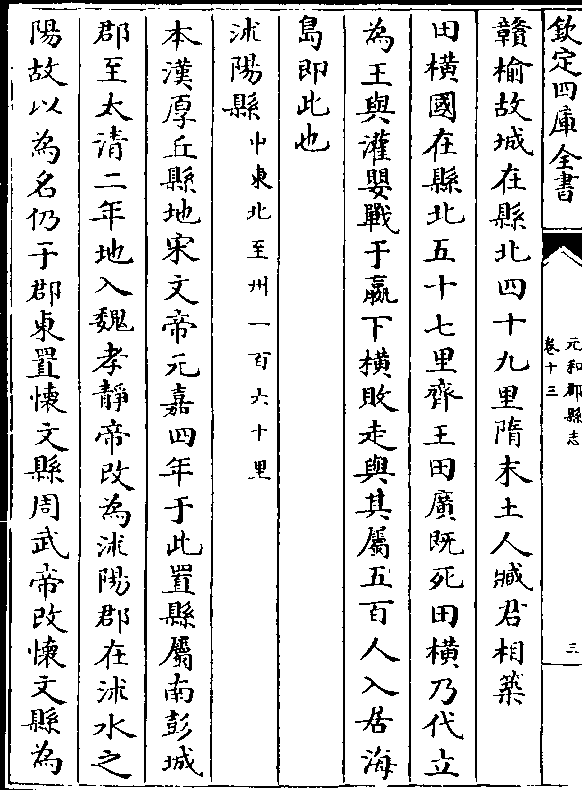 欽定四庫全書
元和郡縣志
卷十三
三
贛榆故城在縣北四十九里隋末土人臧君相築
田橫國在縣北五十七里齊王田廣既死田橫乃代立
為王與灌嬰戰于嬴下橫敗走與其屬五百人入居海
島即此也
沭陽縣中東北至州一百六十里
本漢厚丘縣地宋文帝元嘉四年于此置縣屬南彭城
郡至太清二年地入魏孝靜帝改為沭陽郡在沭水之
陽故以為名仍于郡東置懷文縣周武帝改懷文縣為